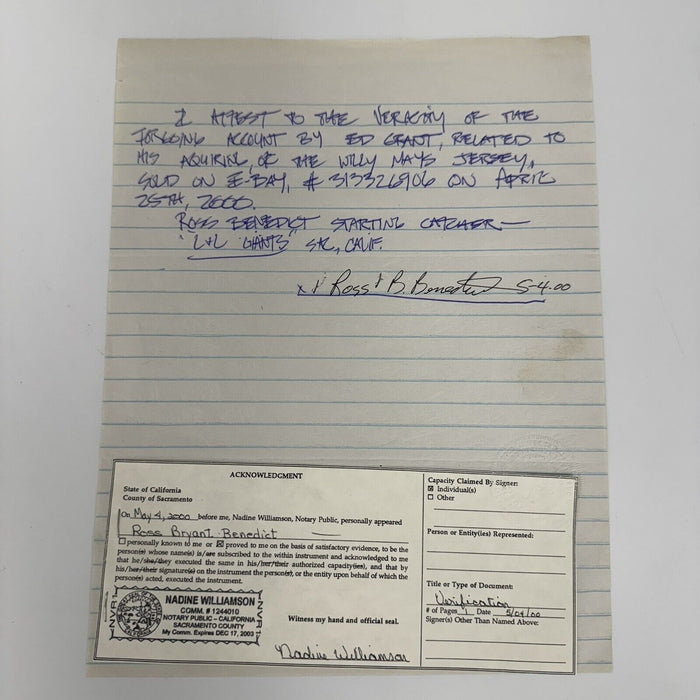 I ATTEST TO THE VERACITY OF THE
FORGOING ACCOUNT BY ED GRANT, RELATED TO
HIS AQUIRING, OF THE WILLY MAYS JERSEY,
SOLD ON E-BAY, # 313326906 ON APRIL
25TH, 2000.
ROSS BENEDICT STARTING CATCHER—
"L&L GIANTS" SAC, CALIF.
x Ross B. Benedict 5-4-00
ACKNOWLEDGMENT
State of California
County of Sacramento
On May 4, 2000 before me, Nadine Williamson, Notary Public, personally appeared
Ross Bryant Benedict
☐ personally known to me or ☒ proved to me on the basis of satisfactory evidence, to be the
person(s) whose name(s) is/are subscribed to the within instrument and acknowledged to me
that he/she/they executed the same in his/her/their authorized capacity(ies), and that by
his/her/their signature(s) on the instrument the person(s), or the entity upon behalf of which the
person(s) acted, executed the instrument.
NADINE WILLIAMSON
COMM. # 1244010
NOTARY PUBLIC - CALIFORNIA
SACRAMENTO COUNTY
My Comm. Expires DEC 17, 2003
Witness my hand and official seal.
Nadine Williamson
Capacity Claimed By Signer:
☒ Individual(s)
☐ Other
Person or Entity(ies) Represented:
Title or Type of Document:
Verification
# of Pages 1 Date 5/04/00
Signer(s) Other Than Named Above: